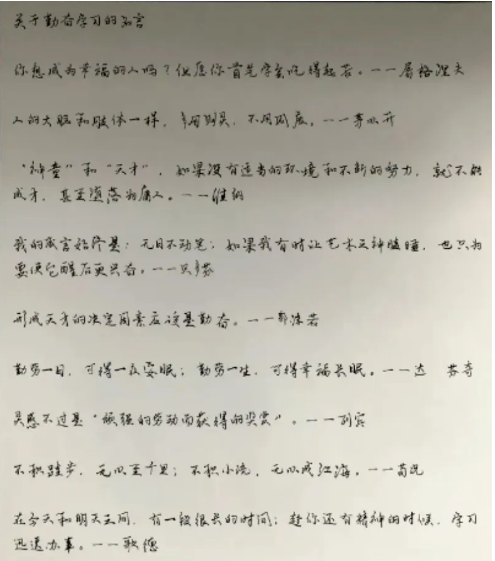 关于勤奋学习的名言
你想成为幸福的人吗？但愿你首先学会吃得起苦。——屠格涅夫
人的大脑和肢体一样，多用则灵，不用则废。——茅以升
“神童”和“天才”，如果没有适当的环境和不断的努力，就不能
成才，甚至堕落为庸人。——维纳
我的箴言始终是：无日不动笔；如果我有时让艺术之神瞌睡，也只为
要使它醒后更兴奋。——贝多芬
形成天才的决定因素应该是勤奋。——郭沫若
勤劳一日，可得一夜安眠；勤劳一生，可得幸福长眠。——达 芬奇
灵感不过是“顽强的劳动而获得的奖赏”。——列宾
不积跬步，无以至千里；不积小流，无以成江海。——荀况
在今天和明天之间，有一段很长的时间；趁你还有精神的时候，学习
迅速办事。——歌德